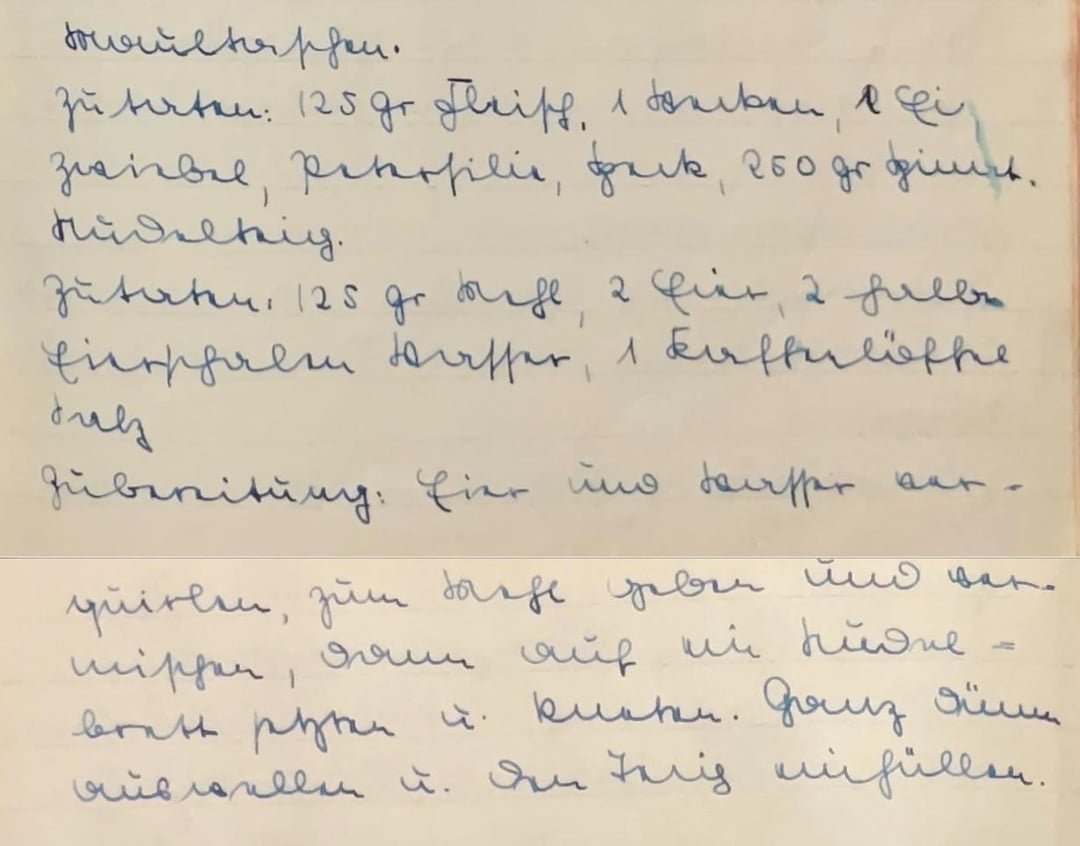 Maultaschen.
Zutaten: 125 gr Fleisch, 1 Wecken, 2 Ei,
Zwiebel, Petersilie, Speck, 250 gr Spinat.
Nudelteig.
Zutaten: 125 gr Mehl, 2 Eier, 2 halbe
Eierschalen Wasser, 1 Kaffeelöffel
Salz
Zubereitung: Eier und Wasser ver-
quirlen, zum Mehl geben und ver-
mischen, dann auf ein Nudel=
brett setzen u. kneten. Ganz dünn
auswellen u. den Teig einfüllen.